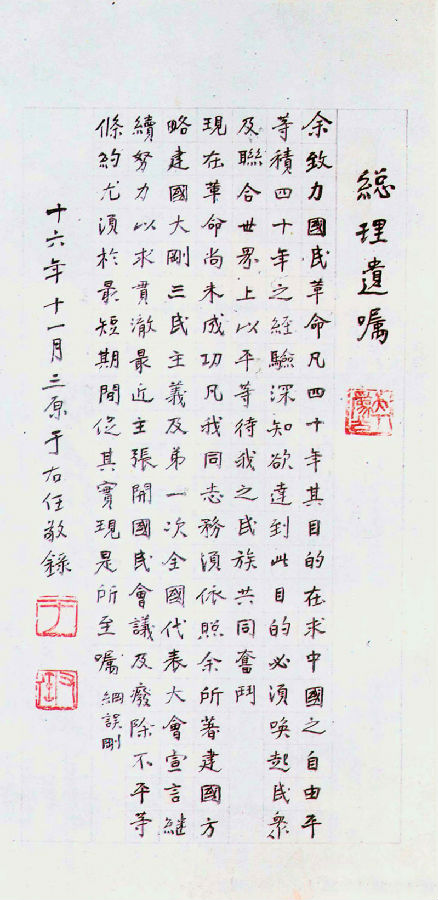 総理遺嘱
余致力國民革命凡四十年其目的在求中國之自由平
等積四十年之經驗深知欲達到此目的必須喚起民衆
及聯合世界上以平等待我之民族共同奮鬥
現在革命尚未成功凡我同志務須依照余所著建國方
略建國大剛三民主義及弟一次全國代表大會宣言繼
續努力以求貫澈最近主張開國民會議及廢除不平等
條約尤須於最短期間促其實現是所至嘱 綱誤剛
十六年十一月三原于右任敬錄
于